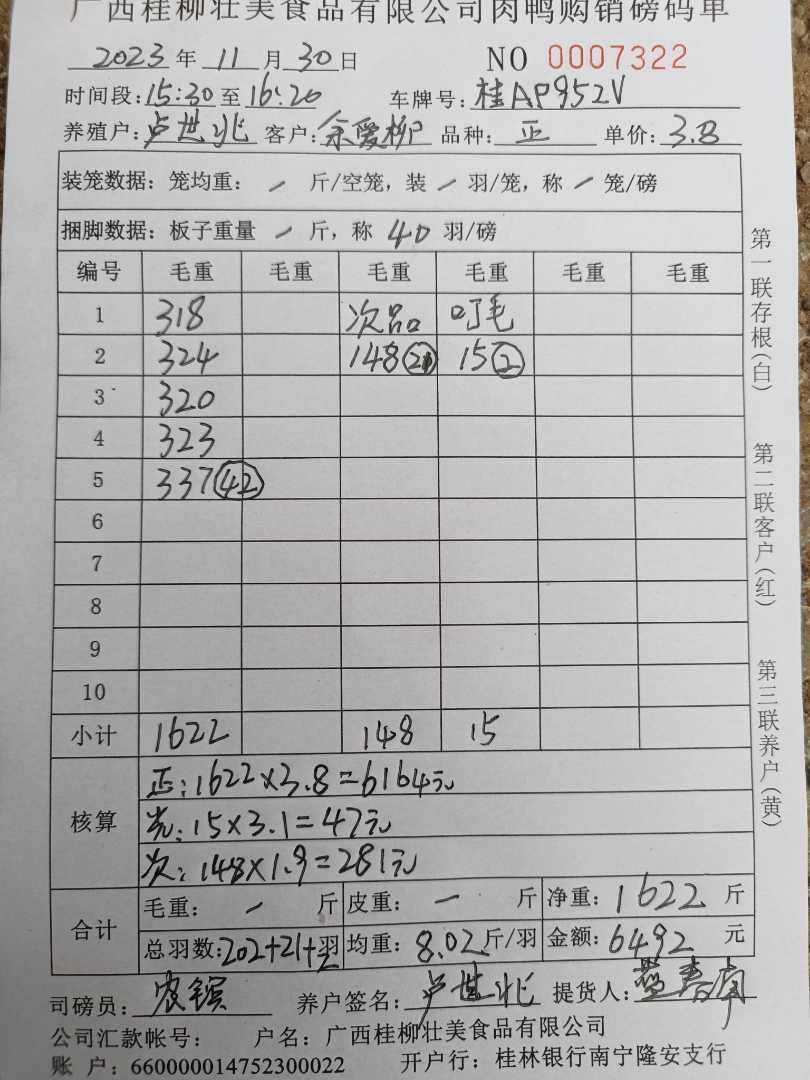 广西桂柳壮美食品有限公司肉鸭购销磅码单
2023 年 11 月 30 日 NO 0007322
时间段: 15:30 至 16:20 车牌号: 桂AP952V
养殖户: 卢世兆 客户: 余爱柳 品种: 正 单价: 3.8
装笼数据: 笼均重: / 斤/空笼, 装 / 羽/笼, 称 / 笼/磅
捆脚数据: 板子重量 / 斤, 称 40 羽/磅
编号 毛重 毛重 毛重 毛重 毛重 毛重
1 318 次品 叮毛
2 324 148 21 15 2
3 320
4 323
5 337 42
6
7
8
9
10
小计 1622 148 15
核算 正: 1622×3.8=6164元
: 15×3.1=47元
次: 148×1.9=281元
合计 毛重: 一 斤 皮重: 一 斤 净重: 1622 斤
总羽数: 202+21+2 均重: 8.02 斤/羽 金额: 6492 元
司磅员: 农镔 养户签名: 卢世兆 提货人:
公司汇款帐号: 户名: 广西桂柳壮美食品有限公司
账 户: 660000014752300022 开户行: 桂林银行南宁隆安支行
第一联存根(白) 第二联客户(红) 第三联养户(黄)